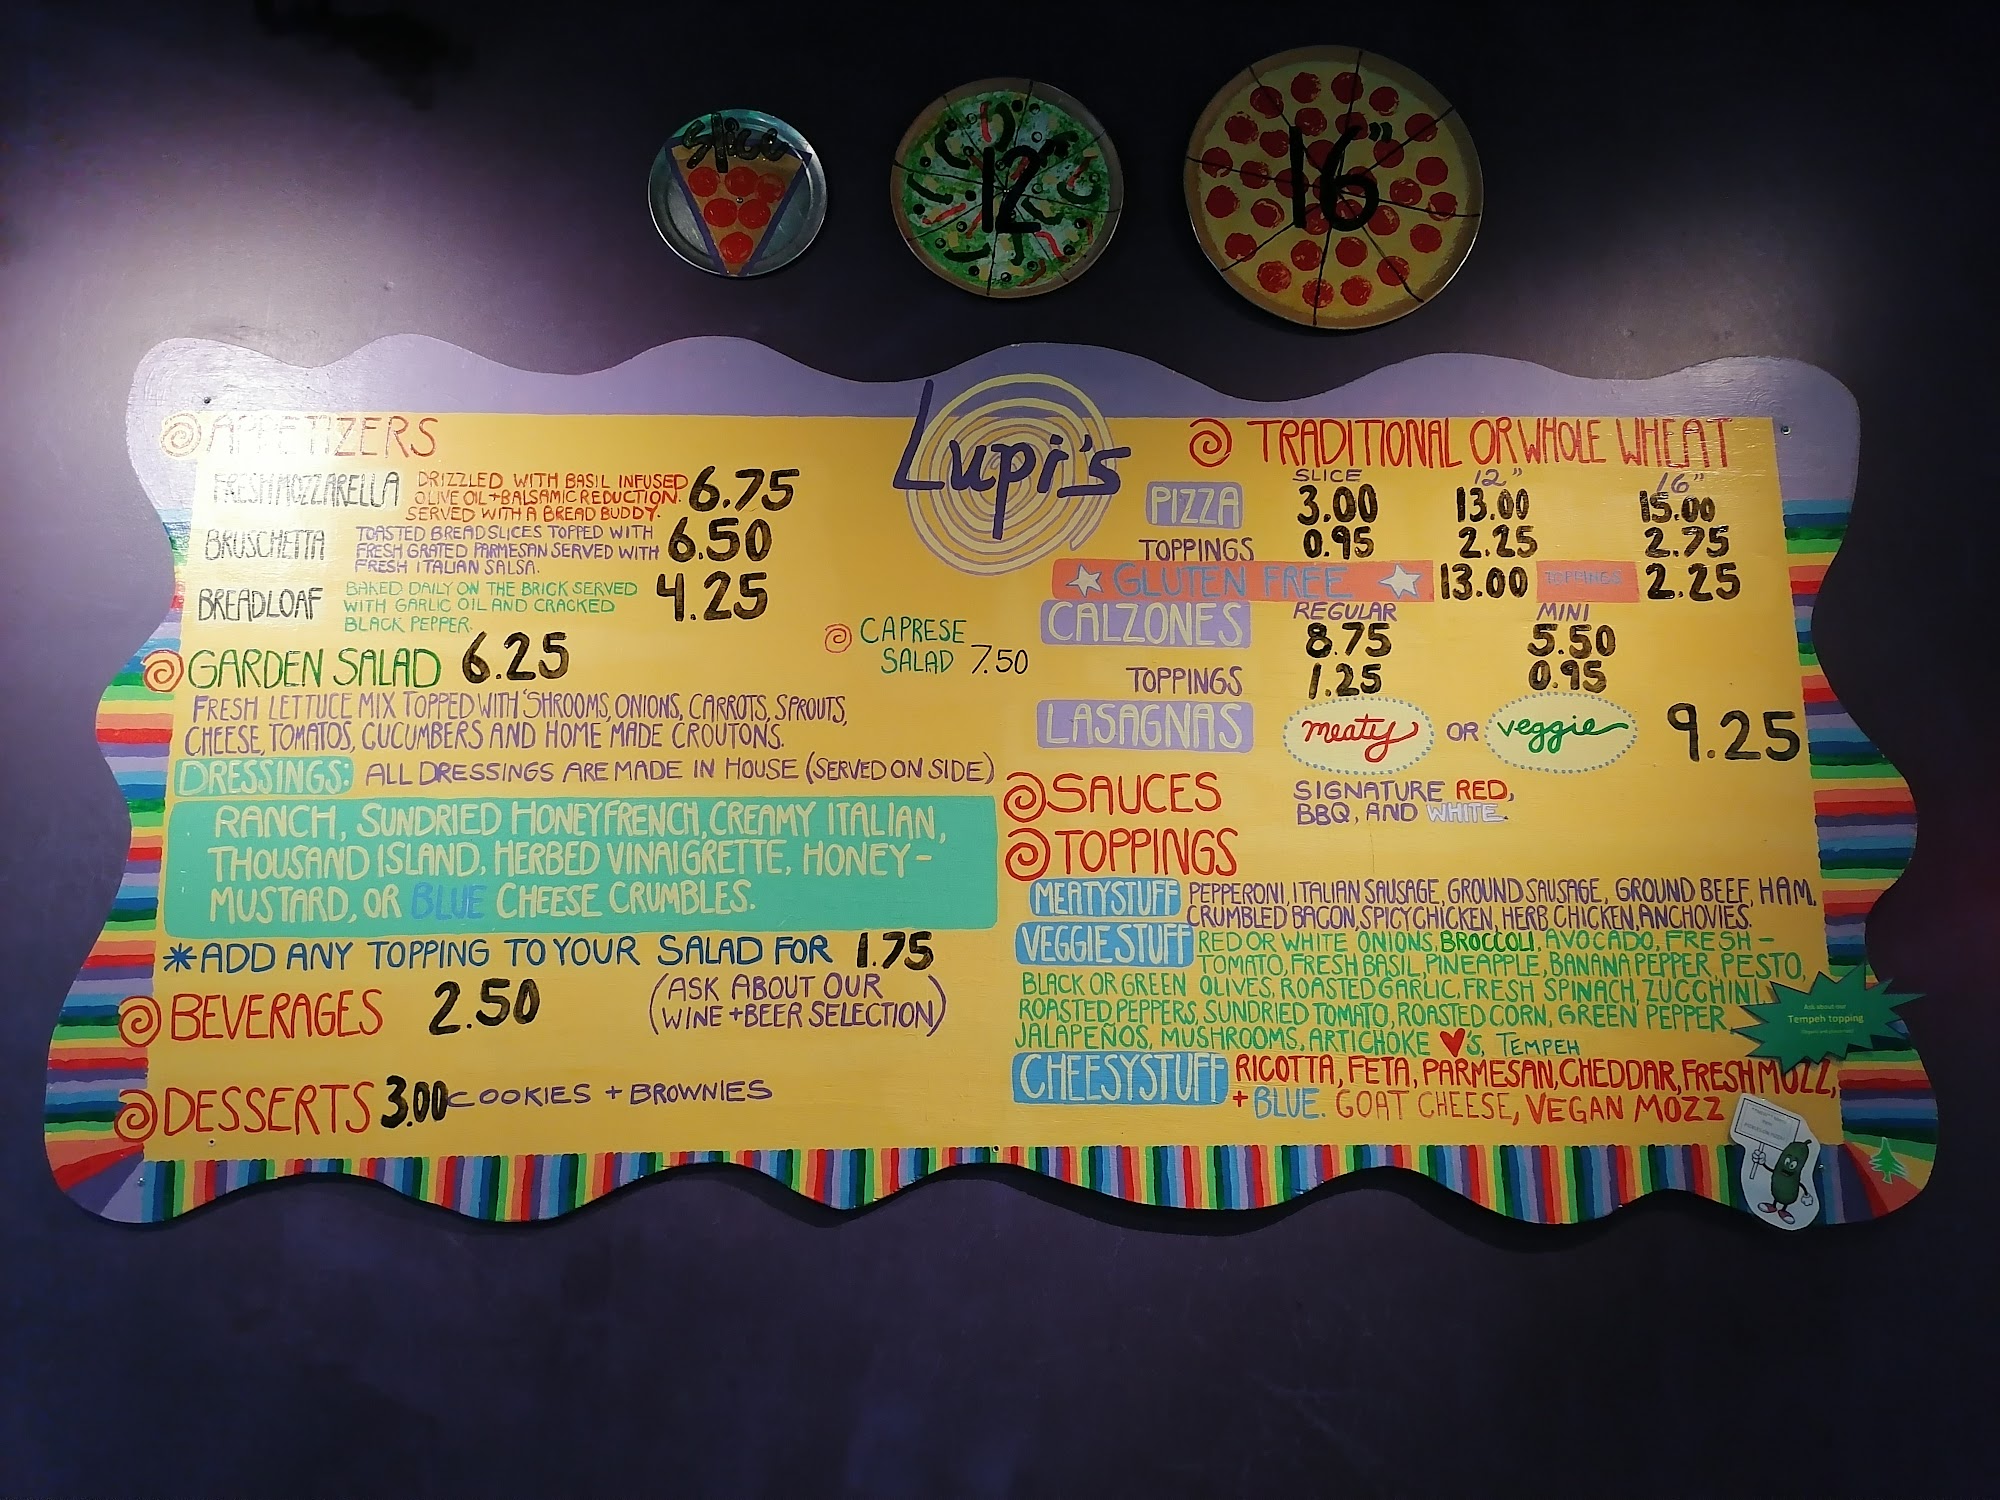 Slice
12"
16"
Lupi's
APPETIZERS
FRESH MOZZARELLA
DRIZZLED WITH BASIL INFUSED
OLIVE OIL + BALSAMIC REDUCTION.
SERVED WITH A BREAD BUDDY.
6.75
BRUSCHETTA
TOASTED BREAD SLICES TOPPED WITH
FRESH GRATED PARMESAN SERVED WITH
FRESH ITALIAN SALSA.
6.50
BREADLOAF
BAKED DAILY ON THE BRICK SERVED
WITH GARLIC OIL AND CRACKED
BLACK PEPPER.
4.25
GARDEN SALAD 6.25
CAPRESE
SALAD 7.50
FRESH LETTUCE MIX TOPPED WITH 'SHROOMS, ONIONS, CARROTS, SPROUTS,
CHEESE, TOMATOS, CUCUMBERS AND HOME MADE CROUTONS.
DRESSINGS: ALL DRESSINGS ARE MADE IN HOUSE (SERVED ON SIDE)
RANCH, SUNDRIED HONEYFRENCH, CREAMY ITALIAN,
THOUSAND ISLAND, HERBED VINAIGRETTE, HONEY-
MUSTARD, OR BLUE CHEESE CRUMBLES.
*ADD ANY TOPPING TO YOUR SALAD FOR 1.75
BEVERAGES 2.50
(ASK ABOUT OUR
WINE + BEER SELECTION)
DESSERTS 3.00 COOKIES + BROWNIES
TRADITIONAL OR WHOLE WHEAT
SLICE 12" 16"
PIZZA 3.00 13.00 15.00
TOPPINGS 0.95 2.25 2.75
GLUTEN FREE 13.00 TOPPINGS 2.25
REGULAR MINI
CALZONES 8.75 5.50
TOPPINGS 1.25 0.95
LASAGNAS meaty OR veggie 9.25
SAUCES
SIGNATURE RED,
BBQ, AND WHITE.
TOPPINGS
MEATYSTUFF PEPPERONI, ITALIAN SAUSAGE, GROUND SAUSAGE, GROUND BEEF, HAM,
CRUMBLED BACON, SPICY CHICKEN, HERB CHICKEN, ANCHOVIES.
VEGGIE STUFF RED OR WHITE ONIONS, BROCCOLI, AVOCADO, FRESH-
TOMATO, FRESH BASIL, PINEAPPLE, BANANA PEPPER, PESTO,
BLACK OR GREEN OLIVES, ROASTED GARLIC, FRESH SPINACH, ZUCCHINI
ROASTED PEPPERS, SUNDRIED TOMATO, ROASTED CORN, GREEN PEPPER
JALAPEÑOS, MUSHROOMS, ARTICHOKE ♥'S, TEMPEH
CHEESYSTUFF RICOTTA, FETA, PARMESAN, CHEDDAR, FRESH MOZZ,
+ BLUE. GOAT CHEESE, VEGAN MOZZ
Ask about our
Tempeh topping